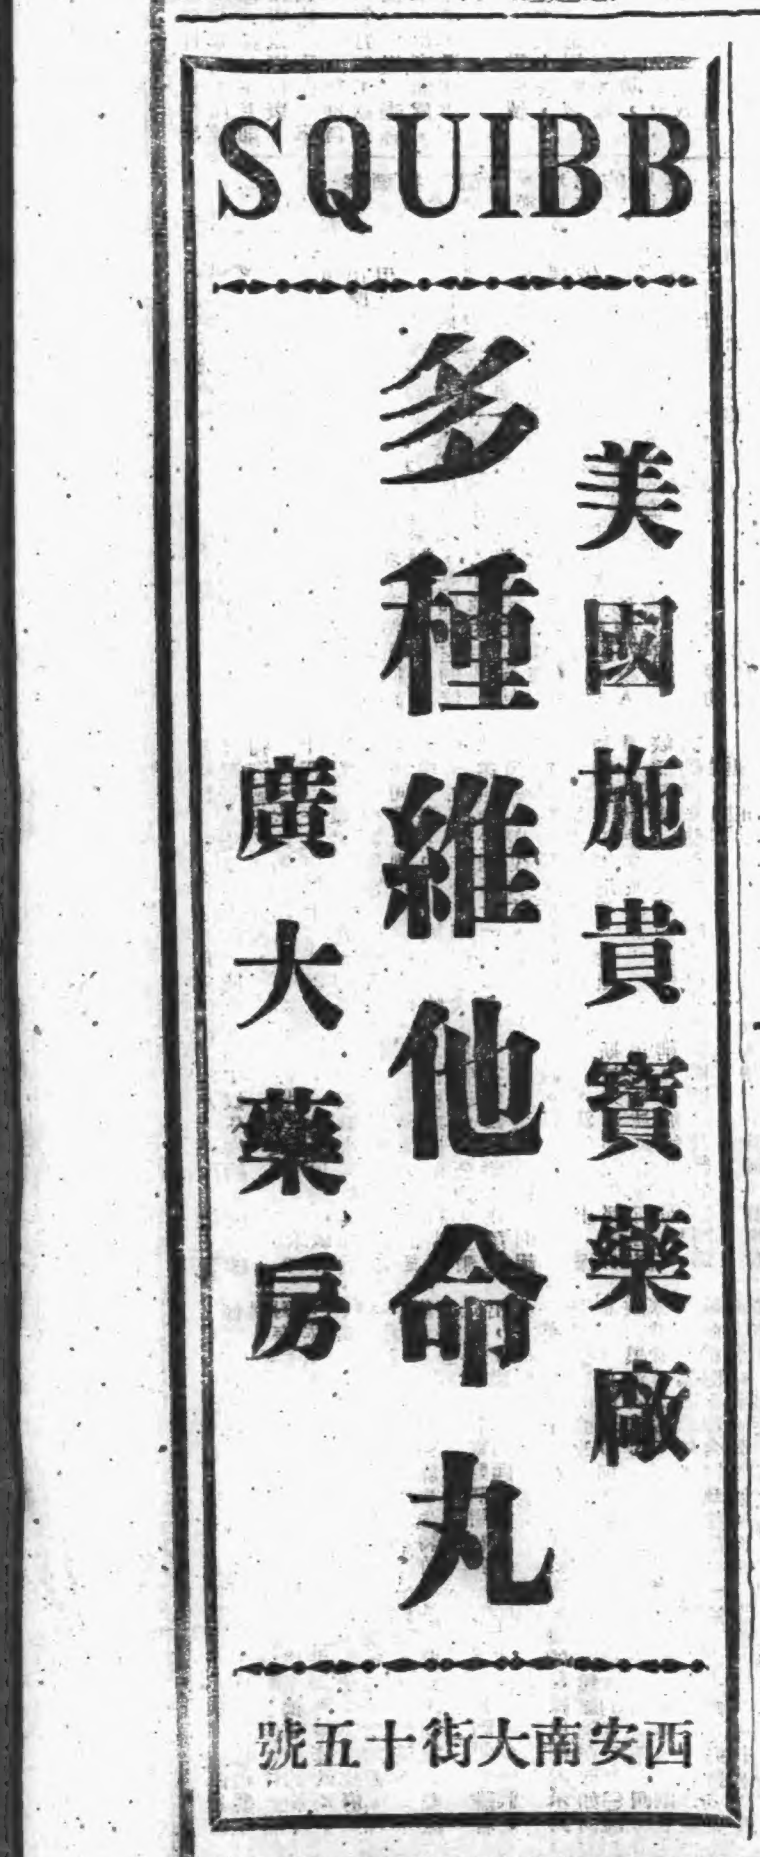 SQUIBB
美國施貴寶藥廠
多種維他命丸
廣大藥房
西安南大街十五號